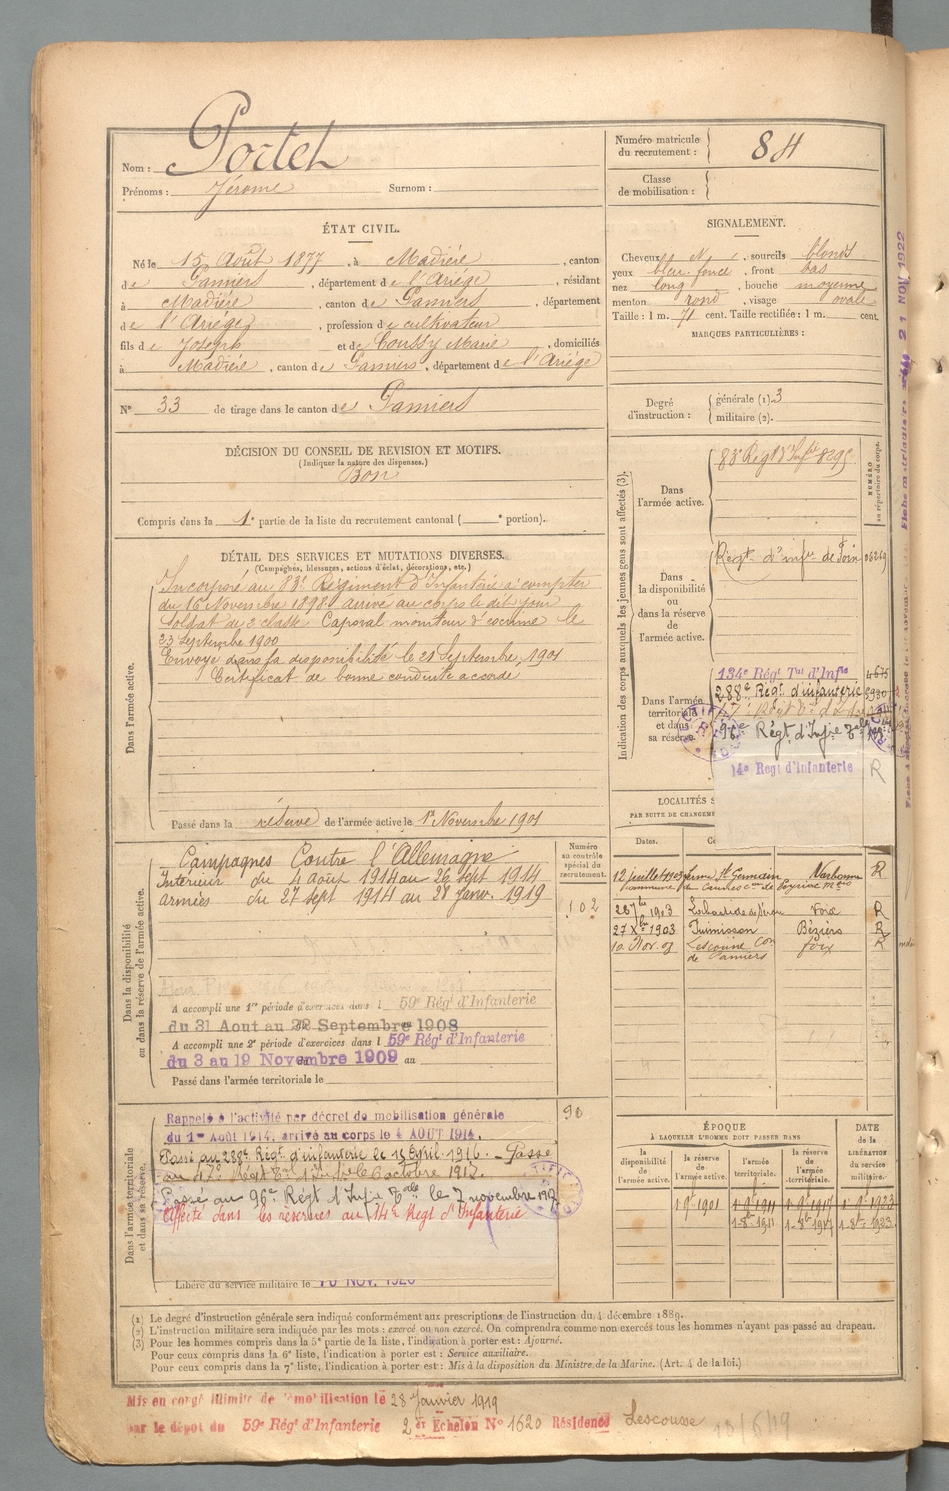 Nom : Portet
Prénoms : Jérome Surnom :
Numéro matricule du recrutement : 84
Classe de mobilisation :
ÉTAT CIVIL.
Né le 15 Août 1877, à Madière, canton
de Pamiers, département de l'Ariège, résidant
à Madière, canton de Pamiers, département
de l'Ariège, profession de cultivateur
fils de Joseph et de Coussy Marie, domiciliés
à Madière, canton de Pamiers, département de l'Ariège
N° 33 de tirage dans le canton de Pamiers
SIGNALEMENT.
Cheveux N, sourcils blonds
yeux bleu foncé, front bas
nez long, bouche moyenne
menton rond, visage ovale
Taille : 1 m. 71 cent. Taille rectifiée : 1 m. cent.
MARQUES PARTICULIÈRES :
Degré d'instruction : générale (1). 3
militaire (2).
DÉCISION DU CONSEIL DE REVISION ET MOTIFS.
(Indiquer la nature des dispenses.)
Bon
Compris dans la 1e partie de la liste du recrutement cantonal ( e portion).
DÉTAIL DES SERVICES ET MUTATIONS DIVERSES.
(Campagnes, blessures, actions d'éclat, décorations, etc.)
Dans l'armée active.
Incorporé au 83e Régiment d'Infanterie à compter
du 16 Novembre 1898. arrivé au corps le dit jour
Soldat de 2e classe Caporal moniteur d'escrime le
23 Septembre 1900
Envoyé dans la disponibilité le 21 Septembre 1901
Certificat de bonne conduite accordé
Passé dans la réserve de l'armée active le 1er Novembre 1901
Indication des corps auxquels les jeunes gens sont affectés (3).
NUMÉRO au répertoire du corps.
Dans l'armée active.
83e Régt d'Infie 8295
Dans la disponibilité ou dans la réserve de l'armée active.
Régt d'infie de Foix 06269
Dans l'armée territoriale et dans sa réserve.
134e Régt Tal d'Infie 4675
288e Régt d'infanterie
96e Régt d'Infre Tale
14e Régt d'Infanterie R
Fiche matriculaire
21 NOV 1922
LOCALITÉS S
PAR SUITE DE CHANGEME
Dates.
12 juillet 1903 ferme St Germain Narbonne R
commune de
28 7bre 1903 Labastide de Foix R
27 Xbre 1903 Puimisson Béziers R
10 Nov. Lescousse Con de Pamiers Foix R
Dans la disponibilité ou dans la réserve de l'armée active.
Numéro au contrôle spécial du recrutement.
102
Campagnes Contre l'Allemagne
Intérieur du 4 août 1914 au 26 sept 1914
armées du 27 sept 1914 au 28 janv. 1919
A accompli une 1re période d'exercices dans l 59e Régt d'Infanterie
du 31 Aout au 22 Septembre 1908
A accompli une 2e période d'exercices dans l 59e Régt d'Infanterie
du 3 au 19 Novembre 1909 au
Passé dans l'armée territoriale le
Dans l'armée territoriale et dans sa réserve.
90
Rappelé à l'activité par décret de mobilisation générale
du 1er Août 1914, arrivé au corps le 4 AOUT 1914.
Passé au 288e Régt d'infanterie le 15 Avril 1916. - Passé
au 47e Régt Tal d'Infie le 6 octobre 1917.
Passé au 96e Régt d'Infre Tale le 7 novembre 1917
Affecté dans les réserves au 14e Régt d'Infanterie
Libéré du service militaire le 10 NOV. 1926
ÉPOQUE
À LAQUELLE L'HOMME DOIT PASSER DANS
la disponibilité de l'armée active.
la réserve de l'armée active.
l'armée territoriale.
la réserve de l'armée territoriale.
DATE de la LIBÉRATION du service militaire.
1 9bre 1901 1-9bre 1911 1-9bre 1917 1-9bre 1923
1-8bre 1911 1-8bre 1917 1-8bre 1923
(1) Le degré d'instruction générale sera indiqué conformément aux prescriptions de l'instruction du 4 décembre 1889.
(2) L'instruction militaire sera indiquée par les mots : exercé ou non exercé. On comprendra comme non exercés tous les hommes n'ayant pas passé au drapeau.
(3) Pour les hommes compris dans la 5e partie de la liste, l'indication à porter est : Ajourné.
Pour ceux compris dans la 6e liste, l'indication à porter est : Service auxiliaire.
Pour ceux compris dans la 7e liste, l'indication à porter est : Mis à la disposition du Ministre de la Marine. (Art. 4 de la loi.)
Mis en congé illimité de démobilisation le 28 Janvier 1919
par le dépôt du 59e Régt d'Infanterie 2 er Echelon N° 1620 Résidence Lescousse